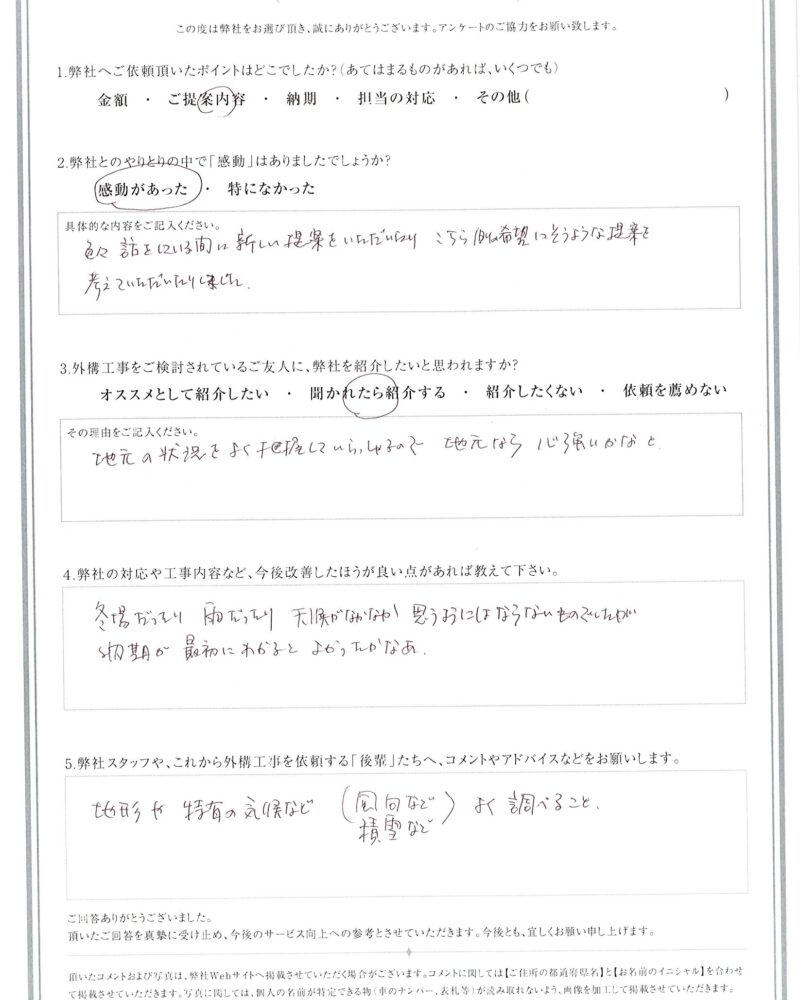 この度は弊社をお選び頂き、誠にありがとうございます。アンケートのご協力をお願い致します。
1.弊社へご依頼頂いたポイントはどこでしたか？(あてはまるものがあれば、いくつでも)
金額 ・ ご提案内容 ・ 納期 ・ 担当の対応 ・ その他( )
2.弊社とのやりとりの中で「感動」はありましたでしょうか？
感動があった ・ 特になかった
具体的な内容をご記入ください。
色々話をしている間に新しい提案をいただいたり こちら側の希望にそうような提案を
考えていただいたりしました.
3.外構工事をご検討されているご友人に、弊社を紹介したいと思われますか？
オススメとして紹介したい ・ 聞かれたら紹介する ・ 紹介したくない ・ 依頼を薦めない
その理由をご記入ください。
地元の状況をよく把握していらっしゃるので 地元なら心強いかなと.
4.弊社の対応や工事内容など、今後改善したほうが良い点があれば教えて下さい。
冬場だったり 雨だったり 天候がなかなか 思うようにはならないものでしたが
納期が 最初にわかると よかったかなあ.
5.弊社スタッフや、これから外構工事を依頼する「後輩」たちへ、コメントやアドバイスなどをお願いします。
地形や 特有の気候など (風向など 積雪など) よく調べること.
ご回答ありがとうございました。
頂いたご回答を真摯に受け止め、今後のサービス向上への参考とさせていただきます。今後とも、宜しくお願い申し上げます。
頂いたコメントおよび写真は、弊社Webサイトへ掲載させていただく場合がございます。コメントに関しては【ご住所の都道府県名】と【お名前のイニシャル】を合わせ
て掲載させていただきます。写真に関しては、個人の名前が特定できる物(車のナンバー、表札等)が読み取れないよう、画像を加工して掲載させていただきます。